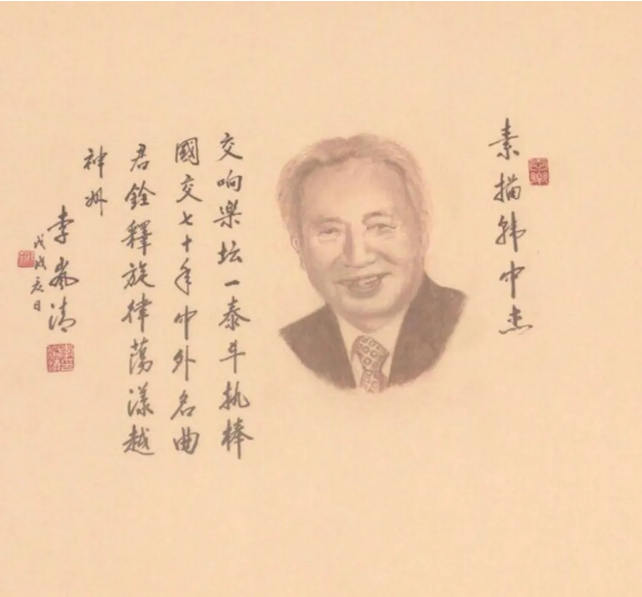 素描韩中杰
交响乐坛一泰斗执棒
國交七十年中外名曲
君銓釋旋律荡漾越
神州
李岚清
戊戌夏日